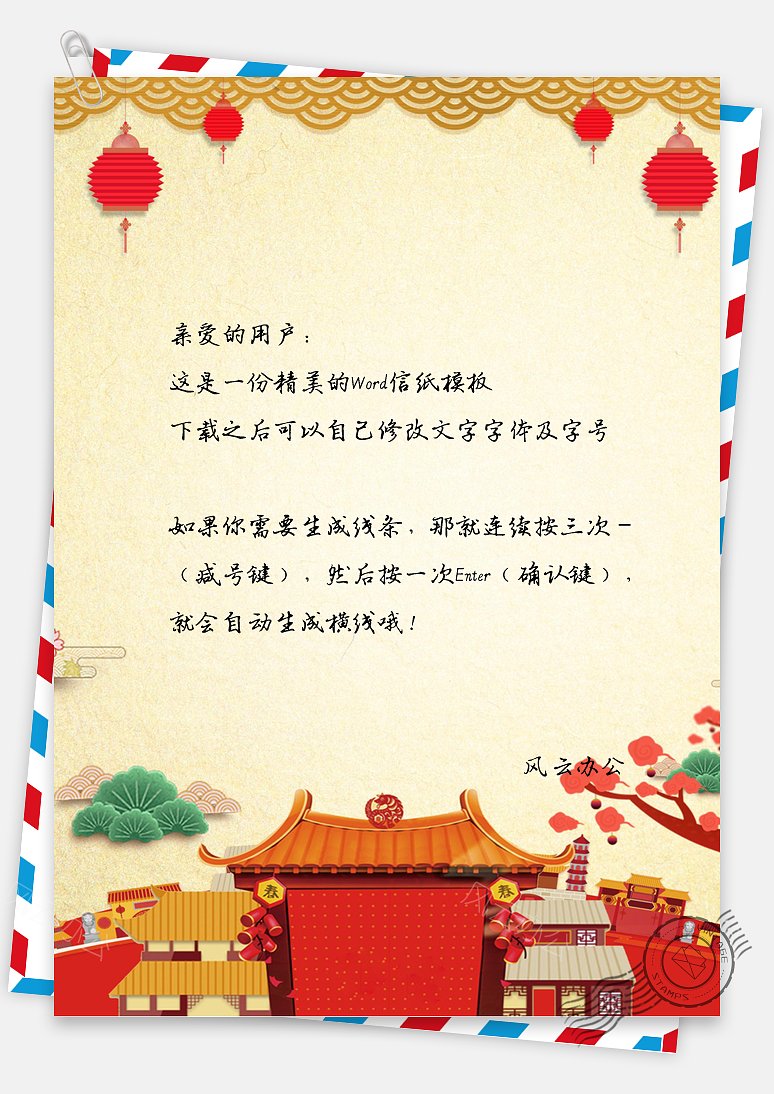 亲爱的用户：
这是一份精美的Word信纸模板
下载之后可以自己修改文字字体及字号
如果你需要生成线条，那就连续按三次－
（减号键），然后按一次Enter（确认键），
就会自动生成横线哦！
风云办公
春
春
STAMPS